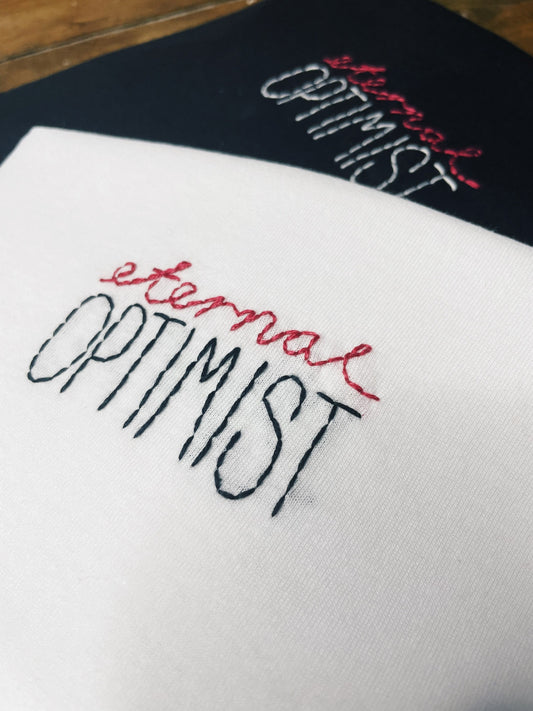 eternal
OPTIMIST
eternal
OPTIMIST